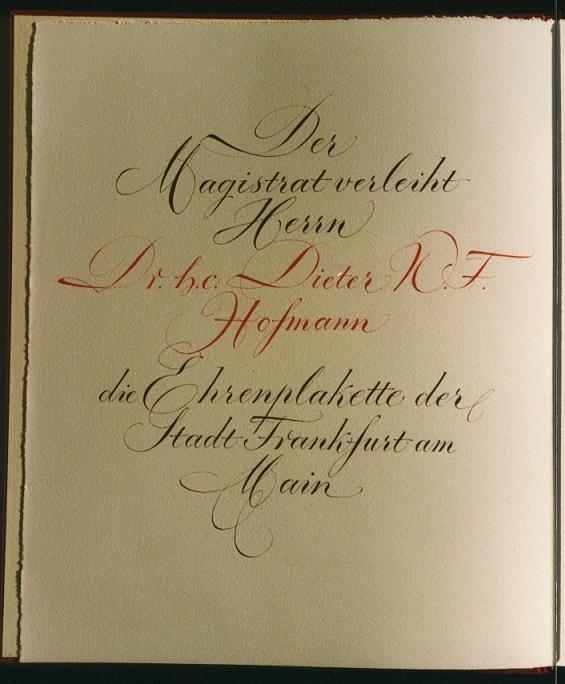 Der
Magistrat verleiht
Herrn
Dr. h.c. Dieter N. F.
Hofmann
die Ehrenplakette der
Stadt Frankfurt am
Main